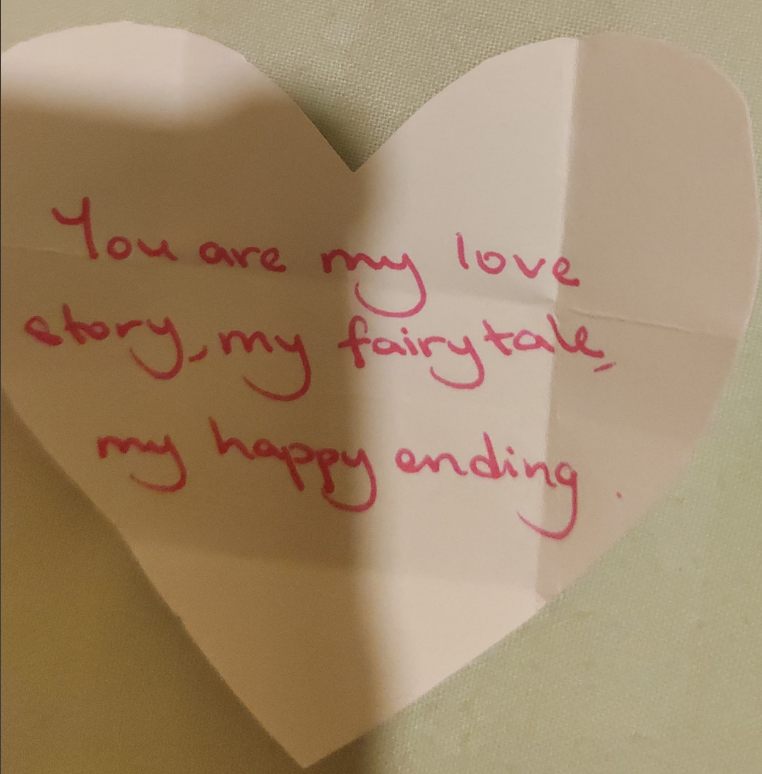 You are my love
story, my fairytale,
my happy ending.